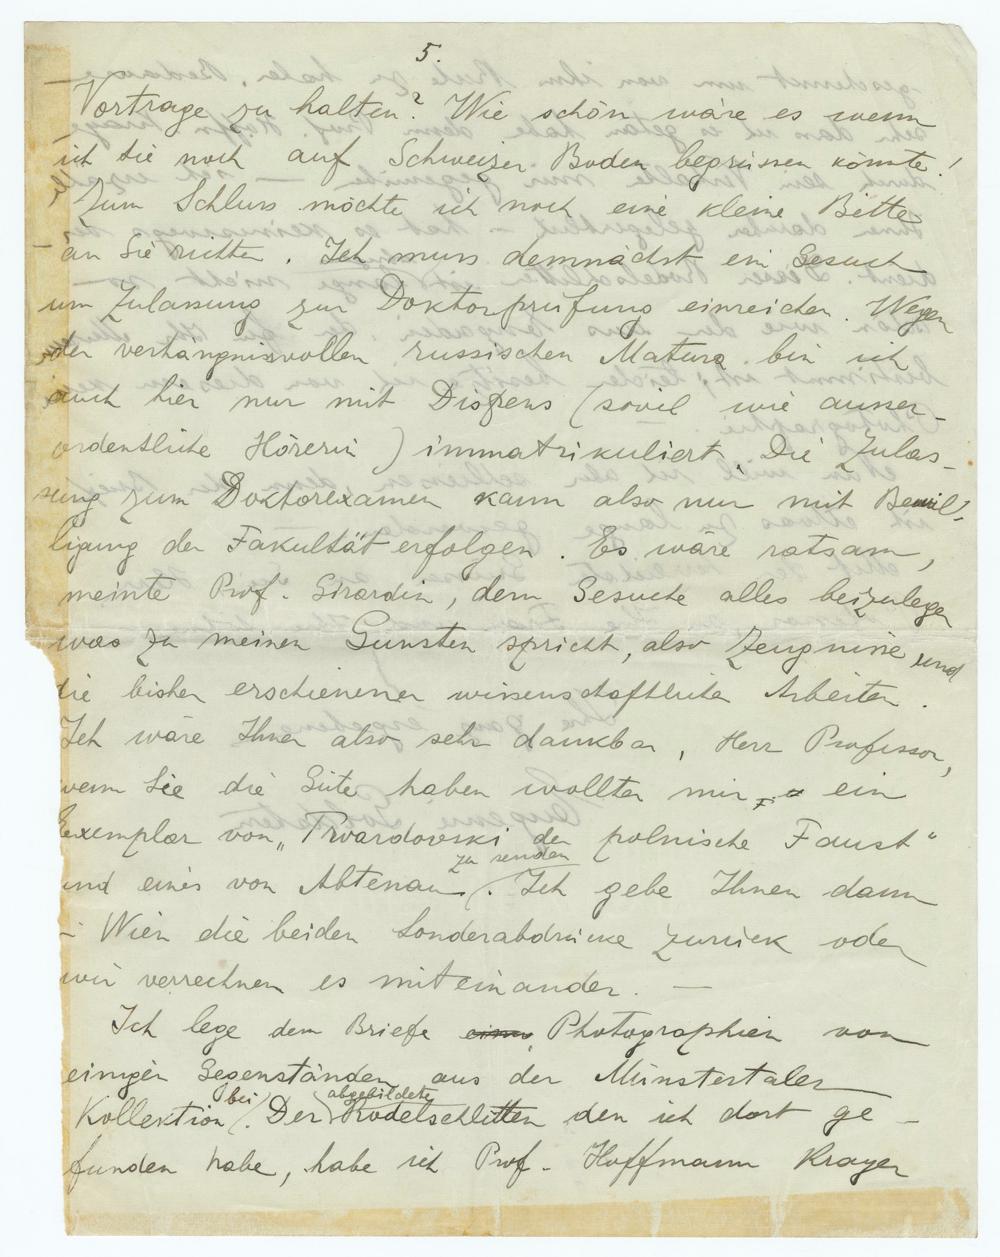 5.
Vorträge zu halten? Wie schön wäre es wenn
ich Sie noch auf Schweizer Boden begrüssen könnte!
Zum Schluss möchte ich noch eine kleine Bitte
an Sie richten. Ich muss demnächst ein Gesuch
um Zulassung zur Doktorprüfung einreichen. Wegen
der verhängnisvollen russischen Matura bin ich
auch hier nur mit Dispens (soviel wie ausser-
ordentliche Hörerin) immatrikuliert. Die Zulas-
sung zum Doktorexamen kann also nur mit Bewil-
ligung der Fakultät erfolgen. Es wäre ratsam,
meinte Prof. Girardin, dem Gesuche alles beizulegen
was zu meinen Gunsten spricht, also Zeugnisse und
die bisher erschienenen wissenschaftlichen Arbeiten.
Ich wäre Ihnen also sehr dankbar, Herr Professor,
wenn Sie die Güte haben wollten mir ein
Exemplar von „Twardowski der polnische Faust“
und eines von Altenau zu senden. Ich gebe Ihnen dann
in Wien die beiden Sonderabdrücke zurück oder
wir verrechnen es miteinander. —
Ich lege dem Briefe Photographien von
einigen Gegenständen aus der Münstertaler
Kollektion bei. Der abgebildete Rodelschlitten den ich dort ge-
funden habe, habe ich Prof. Hoffmann Krayer